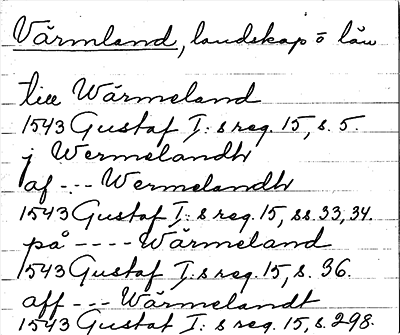 Värmland, landskap o län
till Wärmeland
1543 Gustaf I:s reg. 15, s. 5.
j Wermelandh
af --- Wermelandh
1543 Gustaf I:s reg. 15, ss. 33, 34.
på ---- Wärmeland
1543 Gustaf I:s reg. 15, s. 36.
aff --- Wärmelandt
1543 Gustaf I:s reg. 15, s. 298.